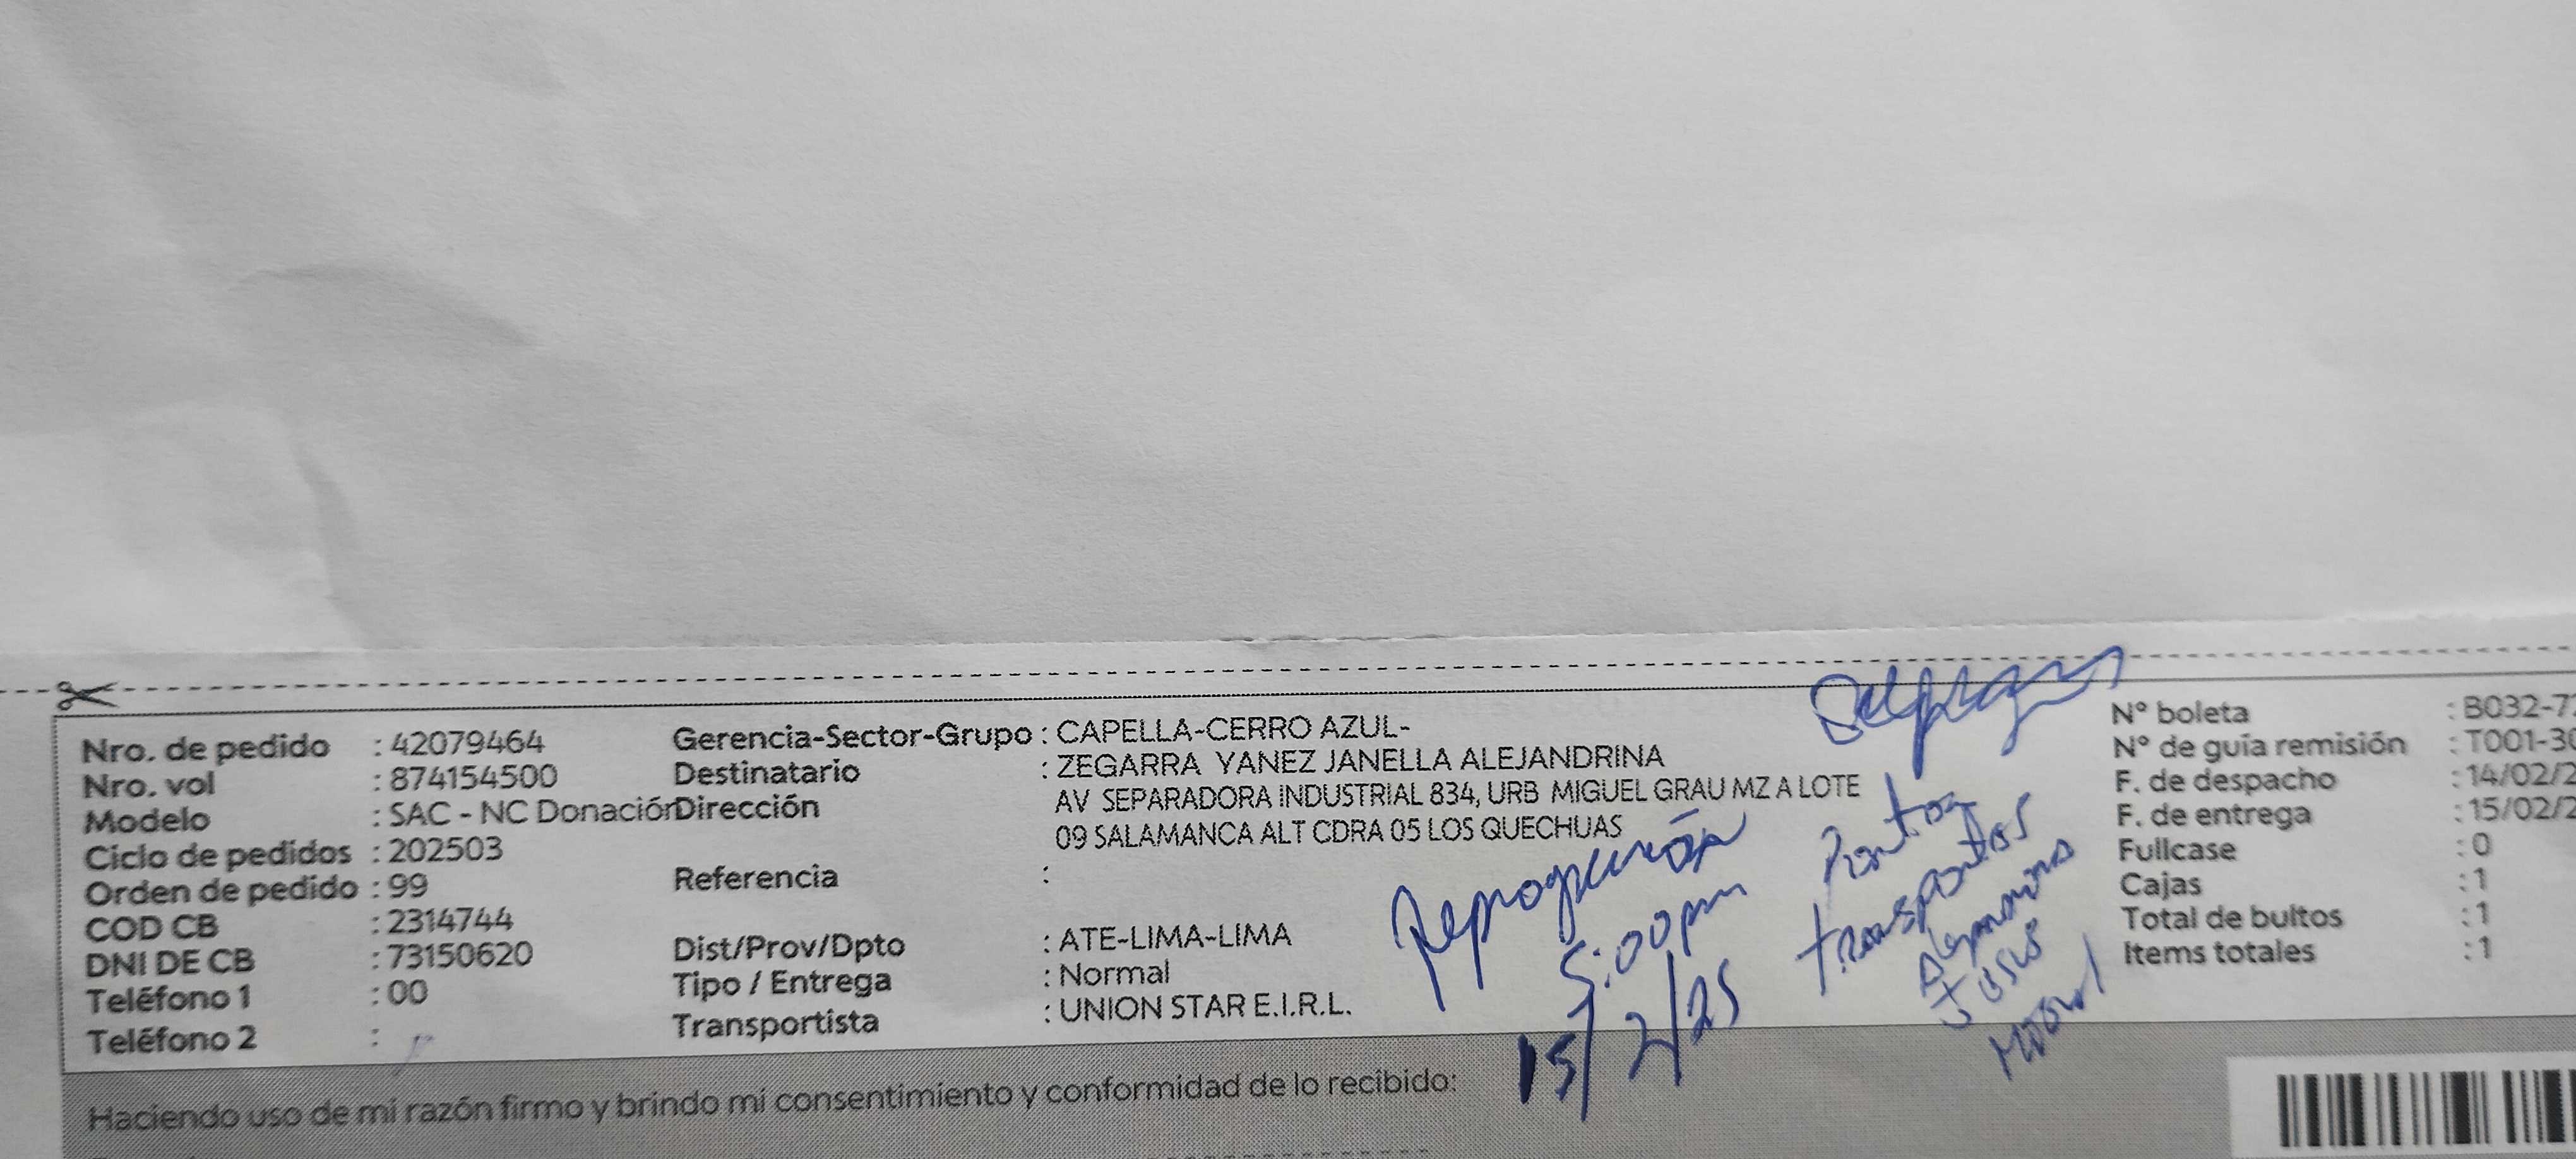 Nro. de pedido : 42079464
Nro. vol : 874154500
Modelo : SAC - NC Donación
Ciclo de pedidos : 202503
Orden de pedido : 99
COD CB : 2314744
DNI DE CB : 73150620
Teléfono 1 : 00
Teléfono 2 :
Gerencia-Sector-Grupo : CAPELLA-CERRO AZUL-
Destinatario : ZEGARRA YANEZ JANELLA ALEJANDRINA
Dirección AV SEPARADORA INDUSTRIAL 834, URB MIGUEL GRAU MZ A LOTE
09 SALAMANCA ALT CDRA 05 LOS QUECHUAS
Referencia :
Dist/Prov/Dpto : ATE-LIMA-LIMA
Tipo / Entrega : Normal
Transportista : UNION STAR E.I.R.L.
5:00 pm
15/2/25
N° boleta : B032-7
N° de guía remisión : T001-30
F. de despacho : 14/02/2
F. de entrega : 15/02/2
Fullcase : 0
Cajas : 1
Total de bultos : 1
Items totales : 1
Haciendo uso de mi razón firmo y brindo mi consentimiento y conformidad de lo recibido: